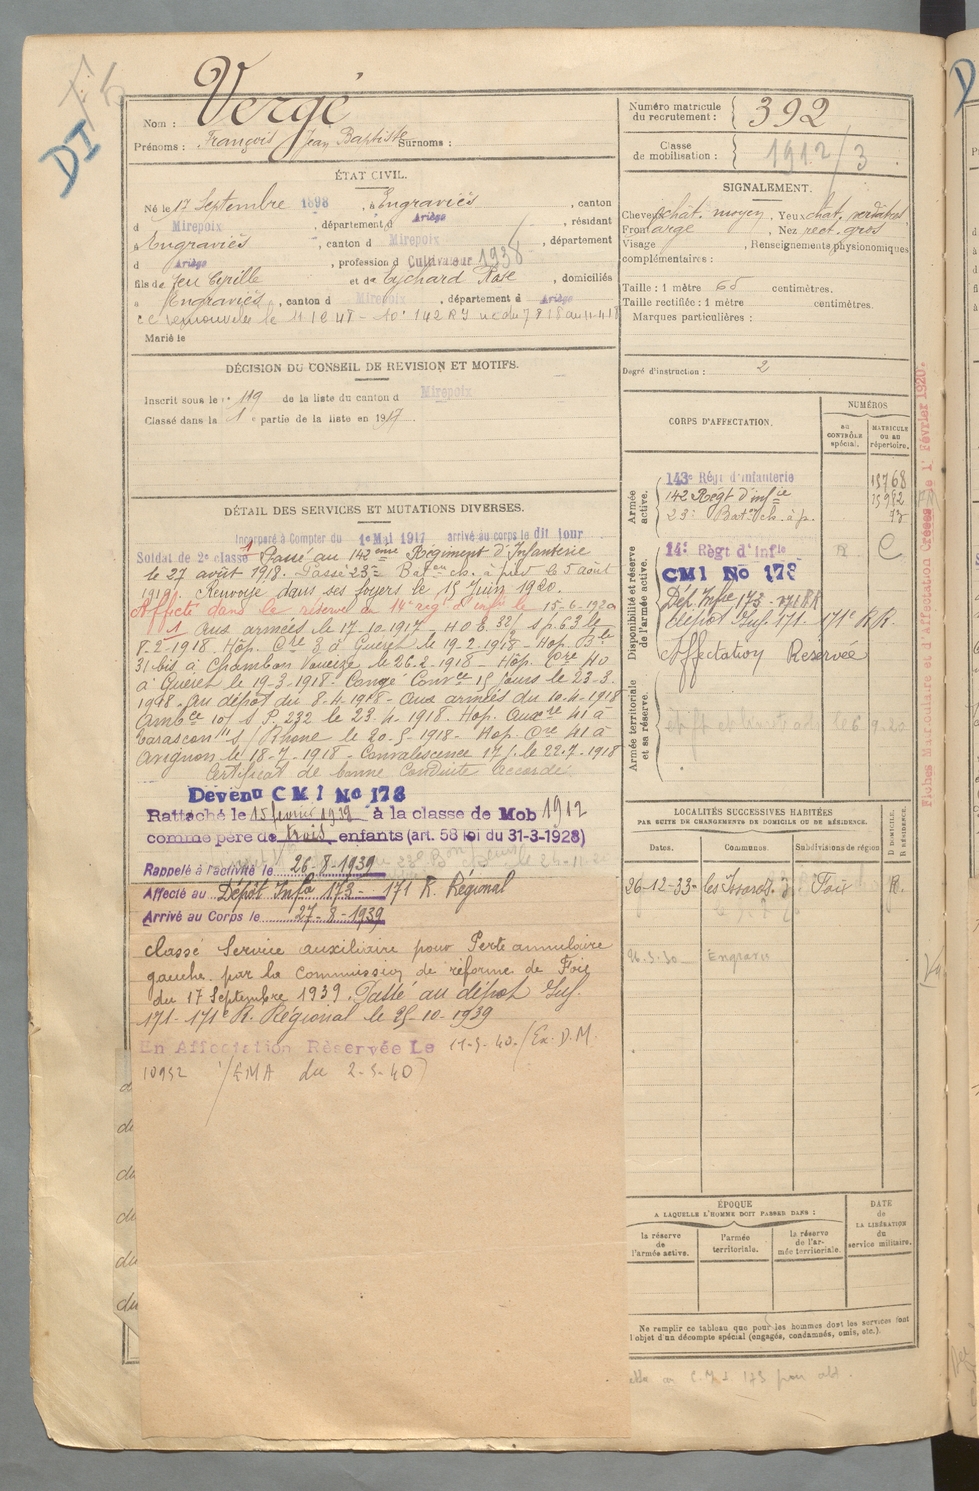 DI
Nom : Vergé
Prénoms : François Jean Baptiste Surnoms :
ÉTAT CIVIL.
Né le 17 Septembre 1898, à Engraviès, canton
d Mirepoix, département d Ariège, résidant
à Engraviès, canton d Mirepoix, département
d Ariège, profession d Cultivateur 1938
fils de feu Cyrille et de Eychard Rose, domiciliés
à Engraviès, canton d Mirepoix, département d Ariège
Marié le
DÉCISION DU CONSEIL DE REVISION ET MOTIFS.
Inscrit sous le n° 119 de la liste du canton d Mirepoix
Classé dans la 1e partie de la liste en 1917
DÉTAIL DES SERVICES ET MUTATIONS DIVERSES.
Incorporé à Compter du 1e Mai 1917 arrivé au corps le dit jour
Soldat de 2e classe Passé au 142ème Régiment d'Infanterie
le 27 août 1918. Passé 23e Baton ch. à pied le 5 août
1919. Renvoyé dans ses foyers le 15 Juin 1920.
Affecté dans la réserve au 14e rég. d'inf. le 15-6-1920
1 Aux armées le 17-10-1917 - H.O.E. 32/1 s.p. 63 le
8-2-1918 Hôp. Cre 3 à Guéret le 19-2-1918 - Hôp.
31 bis à Chambon le 26-2-1918 - Hôp. 40
à Guéret le 19-3-1918 - Congé Convce 15 jours le 23-3-
1918 - au dépôt du 8-4-1918 - Aux armées du 10-4-1918
Ambce 10/ S.P. 232 le 23-4-1918 - Hop. Auxre 41 à
Tarascon s/ Rhône le 20-5-1918 - Hop. 41 à
Avignon le 18-7-1918 - Convalescence 17 j. le 22-7-1918
Certificat de bonne Conduite Accordé.
Devenu C M I No 173
Rattaché le 15 février 1939 à la classe de Mob 1912
comme père de trois enfants (art. 58 loi du 31-3-1928)
Rappelé à l'activité le 26-8-1939
Affecté au Dépôt Infie 173 - 171 R. Régional
Arrivé au Corps le 27-8-1939
classé Service auxiliaire pour Perte annulaire
gauche par la commission de réforme de Foix
du 17 Septembre 1939. Passé au dépôt Inf.
171 - 171e R. Régional le 25-10-1939
En Affectation Réservée Le 11-5-40 (Ex. D.M.
10952 /EMA du 2-5-40)
Numéro matricule
du recrutement : 392
Classe
de mobilisation : 1912/3
SIGNALEMENT.
Cheveux chât. moyen, Yeux chat. verdâtres
Front large, Nez rect. gros
Visage, Renseignements physionomiques
complémentaires :
Taille : 1 mètre 65 centimètres.
Taille rectifiée : 1 mètre centimètres.
Marques particulières :
Degré d'instruction : 2
CORPS D'AFFECTATION.
NUMÉROS
au CONTRÔLE spécial.
MATRICULE OU AU répertoire.
Armée active.
143e Régt d'infanterie 13768
142 Régt d'infie
23e Baton ch. à p.
Disponibilité et réserve de l'armée active.
14e Règt d'Infie
CMI No 173
Dép. Infie 173 -
Dépôt Inf. 171 - 171e R.R.
Affectation Réservée
Armée territoriale et sa réserve.
LOCALITÉS SUCCESSIVES HABITÉES
PAR SUITE DE CHANGEMENTS DE DOMICILE OU DE RÉSIDENCE.
Dates.
Communes.
Subdivisions de région
D DOMICILE.
R RÉSIDENCE.
26-12-33- les Issards Foix R.
Engraviès
ÉPOQUE
A LAQUELLE L'HOMME DOIT PASSER DANS :
la réserve de l'armée active.
l'armée territoriale.
la réserve de l'armée territoriale.
DATE de LA LIBÉRATION du service militaire.
Ne remplir ce tableau que pour les hommes dont les services font
l'objet d'un décompte spécial (engagés, condamnés, omis, etc.).
Fiches Matriculaire et d'Affectation Créées le 1er Février 1920.